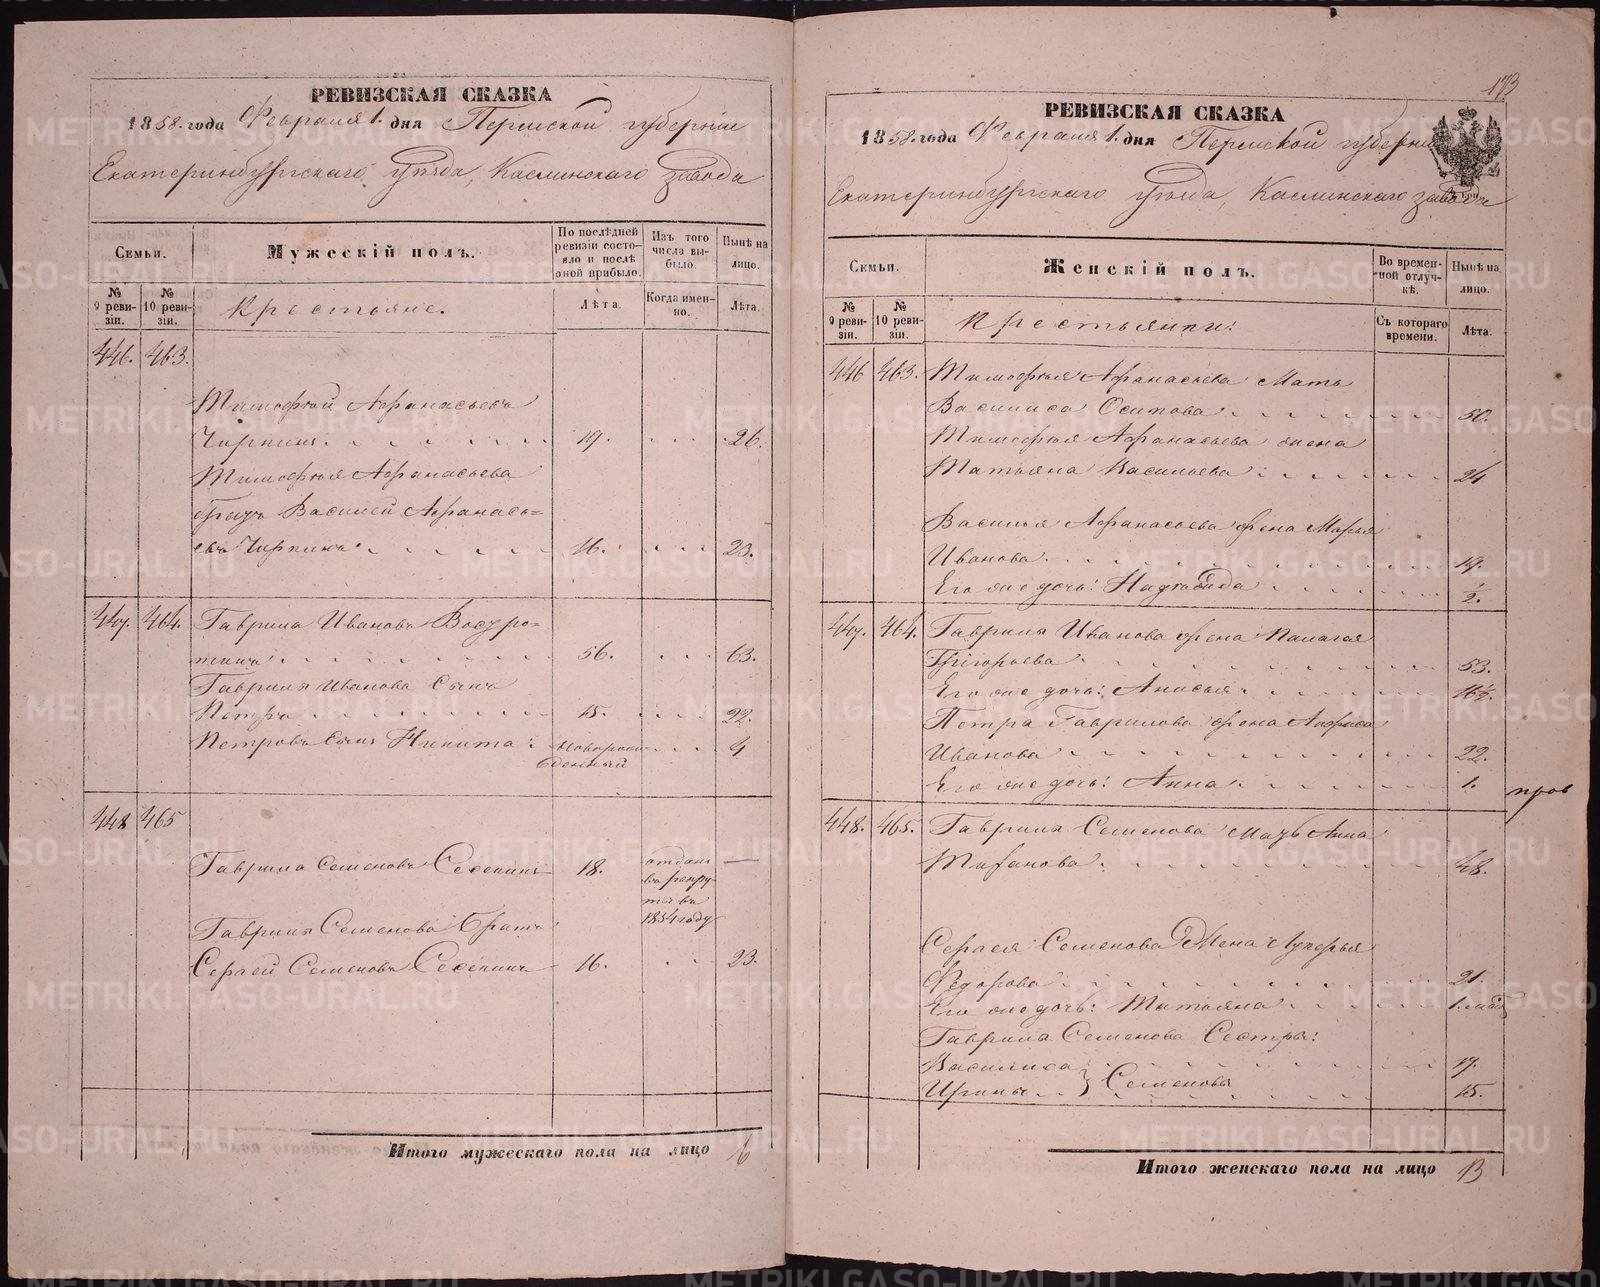 РЕВИЗСКАЯ СКАЗКА
1858. года Февраля 1. дня Пермской губернiи
Екатеринбургскаго уѣзда, Каслинскаго завода
Семьи.
№ 9 ревизiи.
№ 10 ревизiи.
Мужескiй полъ.
Крестьяне.
По послѣдней ревизiи состояло и послѣ оной прибыло.
Лѣта.
Изъ того числа выбыло.
Когда именно.
Нынѣ на лицо.
Лѣта.
446. 463.
Тимофей Афанасьевъ
19. 26.
Тимофея Афанасьева
братъ Василей Афанась=
евъ 16. 23.
447. 464. Гаврила Ивановъ Востро=
тинъ 56. 63.
Гаврилы Иванова сынъ
Петръ 15. 22.
Петровъ сынъ Никита новорожденный 4
448 465
Гаврила Семеновъ 18. отданъ въ рекруты въ 1854 году —
Гаврилы Семенова братъ
Сергей Семеновъ 16. 23.
Итого мужескаго пола на лицо 6
173
РЕВИЗСКАЯ СКАЗКА
1858. года Февраля 1. дня Пермской губернiи
Екатеринбургскаго уѣзда, Каслинскаго завода
Семьи.
№ 9 ревизiи.
№ 10 ревизiи.
Женскiй полъ.
Крестьянки:
Во временной отлучкѣ.
Съ котораго времени.
Нынѣ на лицо.
Лѣта.
446 463. Тимофея Афанасьева мать
Василиса Осипова 50.
Тимофея Афанасьева жена
Татьяна Васильева 24
Василья Афанасьева жена Марья
Иванова 19.
Его же дочь: Надежда ½.
447. 464. Гаврилы Иванова жена Палагея
Григорьева 53.
Его же дочь: Анисья 16½.
Петра Гаврилова жена
Иванова 22.
Его же дочь: Анна 1.
пров
448. 465. Гаврилы Семенова мать Анна
48.
Сергея Семенова жена Лукерья
Федорова 21.
Его же дочь: Татьяна
Гаврилы Семенова сестры:
Василиса 17.
Ирина } Семеновы 15.
Итого женскаго пола на лицо 13
METRIKI.GASO-URAL.RU